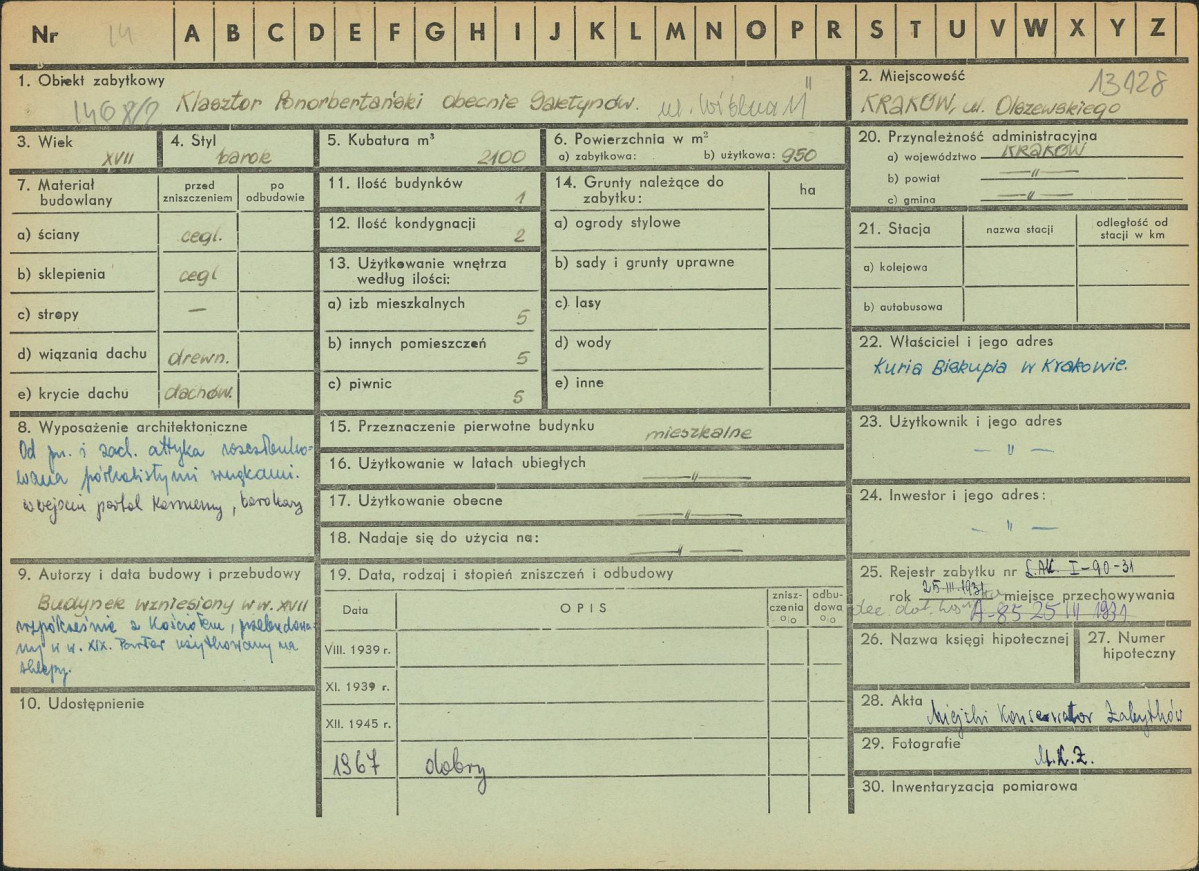 Nr 14 A B C D E F G H I J K L M N O P R S T U V W X Y Z
1. Obiekt zabytkowy
1408/2 Klasztor Ponorbertański obecnie Saletynów. ul. Wiślna 11
2. Miejscowość 13128
KRAKÓW, ul. Olszewskiego
3. Wiek
XVII
4. Styl
barok
5. Kubatura m³
2100
6. Powierzchnia w m²
a) zabytkowa: b) użytkowa: 950
7. Materiał budowlany
przed zniszczeniem
po odbudowie
a) ściany cegl.
b) sklepienia cegl
c) stropy —
d) wiązania dachu drewn.
e) krycie dachu dachów.
8. Wyposażenie architektoniczne
Od pn. i zach. attyka rozczłonko-
wana półkolistymi wnękami.
w wejściu portal kamienny, barokowy
9. Autorzy i data budowy i przebudowy
Budynek wzniesiony w w. XVII
współcześnie z Kościołem, przebudowa-
ny w w. XIX. Parter użytkowany na
sklepy.
10. Udostępnienie
11. Ilość budynków
1
12. Ilość kondygnacji
2
13. Użytkowanie wnętrza
według ilości:
a) izb mieszkalnych
5
b) innych pomieszczeń
5
c) piwnic
5
14. Grunty należące do
zabytku:
ha
a) ogrody stylowe
b) sady i grunty uprawne
c) lasy
d) wody
e) inne
15. Przeznaczenie pierwotne budynku mieszkalne
16. Użytkowanie w latach ubiegłych —"—
17. Użytkowanie obecne —"—
18. Nadaje się do użycia na: —"—
19. Data, rodzaj i stopień zniszczeń i odbudowy
Data
OPIS
znisz-
czenia
%
odbu-
dowa
%
VIII. 1939 r.
XI. 1939 r.
XII. 1945 r.
1967 dobry
20. Przynależność administracyjna
a) województwo KRAKÓW
b) powiat —"—
c) gmina —"—
21. Stacja
nazwa stacji
odległość od
stacji w km
a) kolejowa
b) autobusowa
22. Właściciel i jego adres
Kuria Biskupia w Krakowie.
23. Użytkownik i jego adres
— " —
24. Inwestor i jego adres:
— " —
25. Rejestr zabytku nr L.AK. I-90-31
rok 25-III-1931 miejsce przechowywania
A-85 25 III 1931
26. Nazwa księgi hipotecznej
27. Numer
hipoteczny
28. Akta
Miejski Konserwator Zabytków
29. Fotografie
M.K.Z.
30. Inwentaryzacja pomiarowa